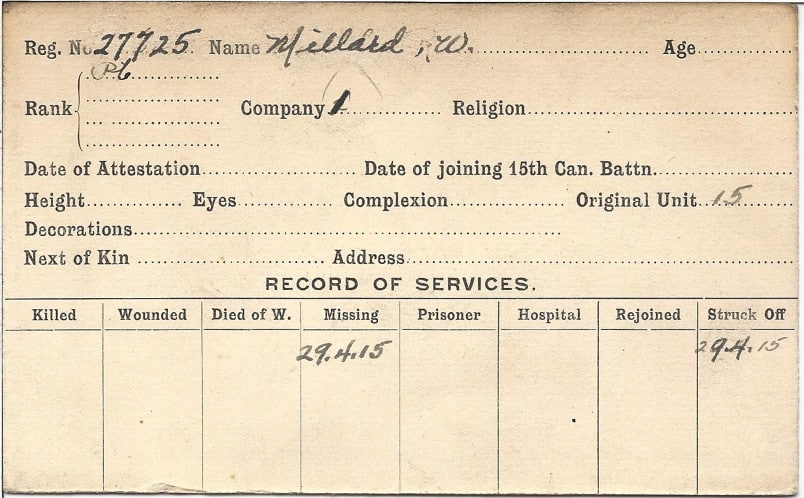 Reg. No 27725 Name Millard, W. Age
Rank Pte
Company 1 Religion
Date of Attestation Date of joining 15th Can. Battn.
Height Eyes Complexion Original Unit 15
Decorations
Next of Kin Address
RECORD OF SERVICES.
Killed Wounded Died of W. Missing Prisoner Hospital Rejoined Struck Off
29.4.15 29.4.15